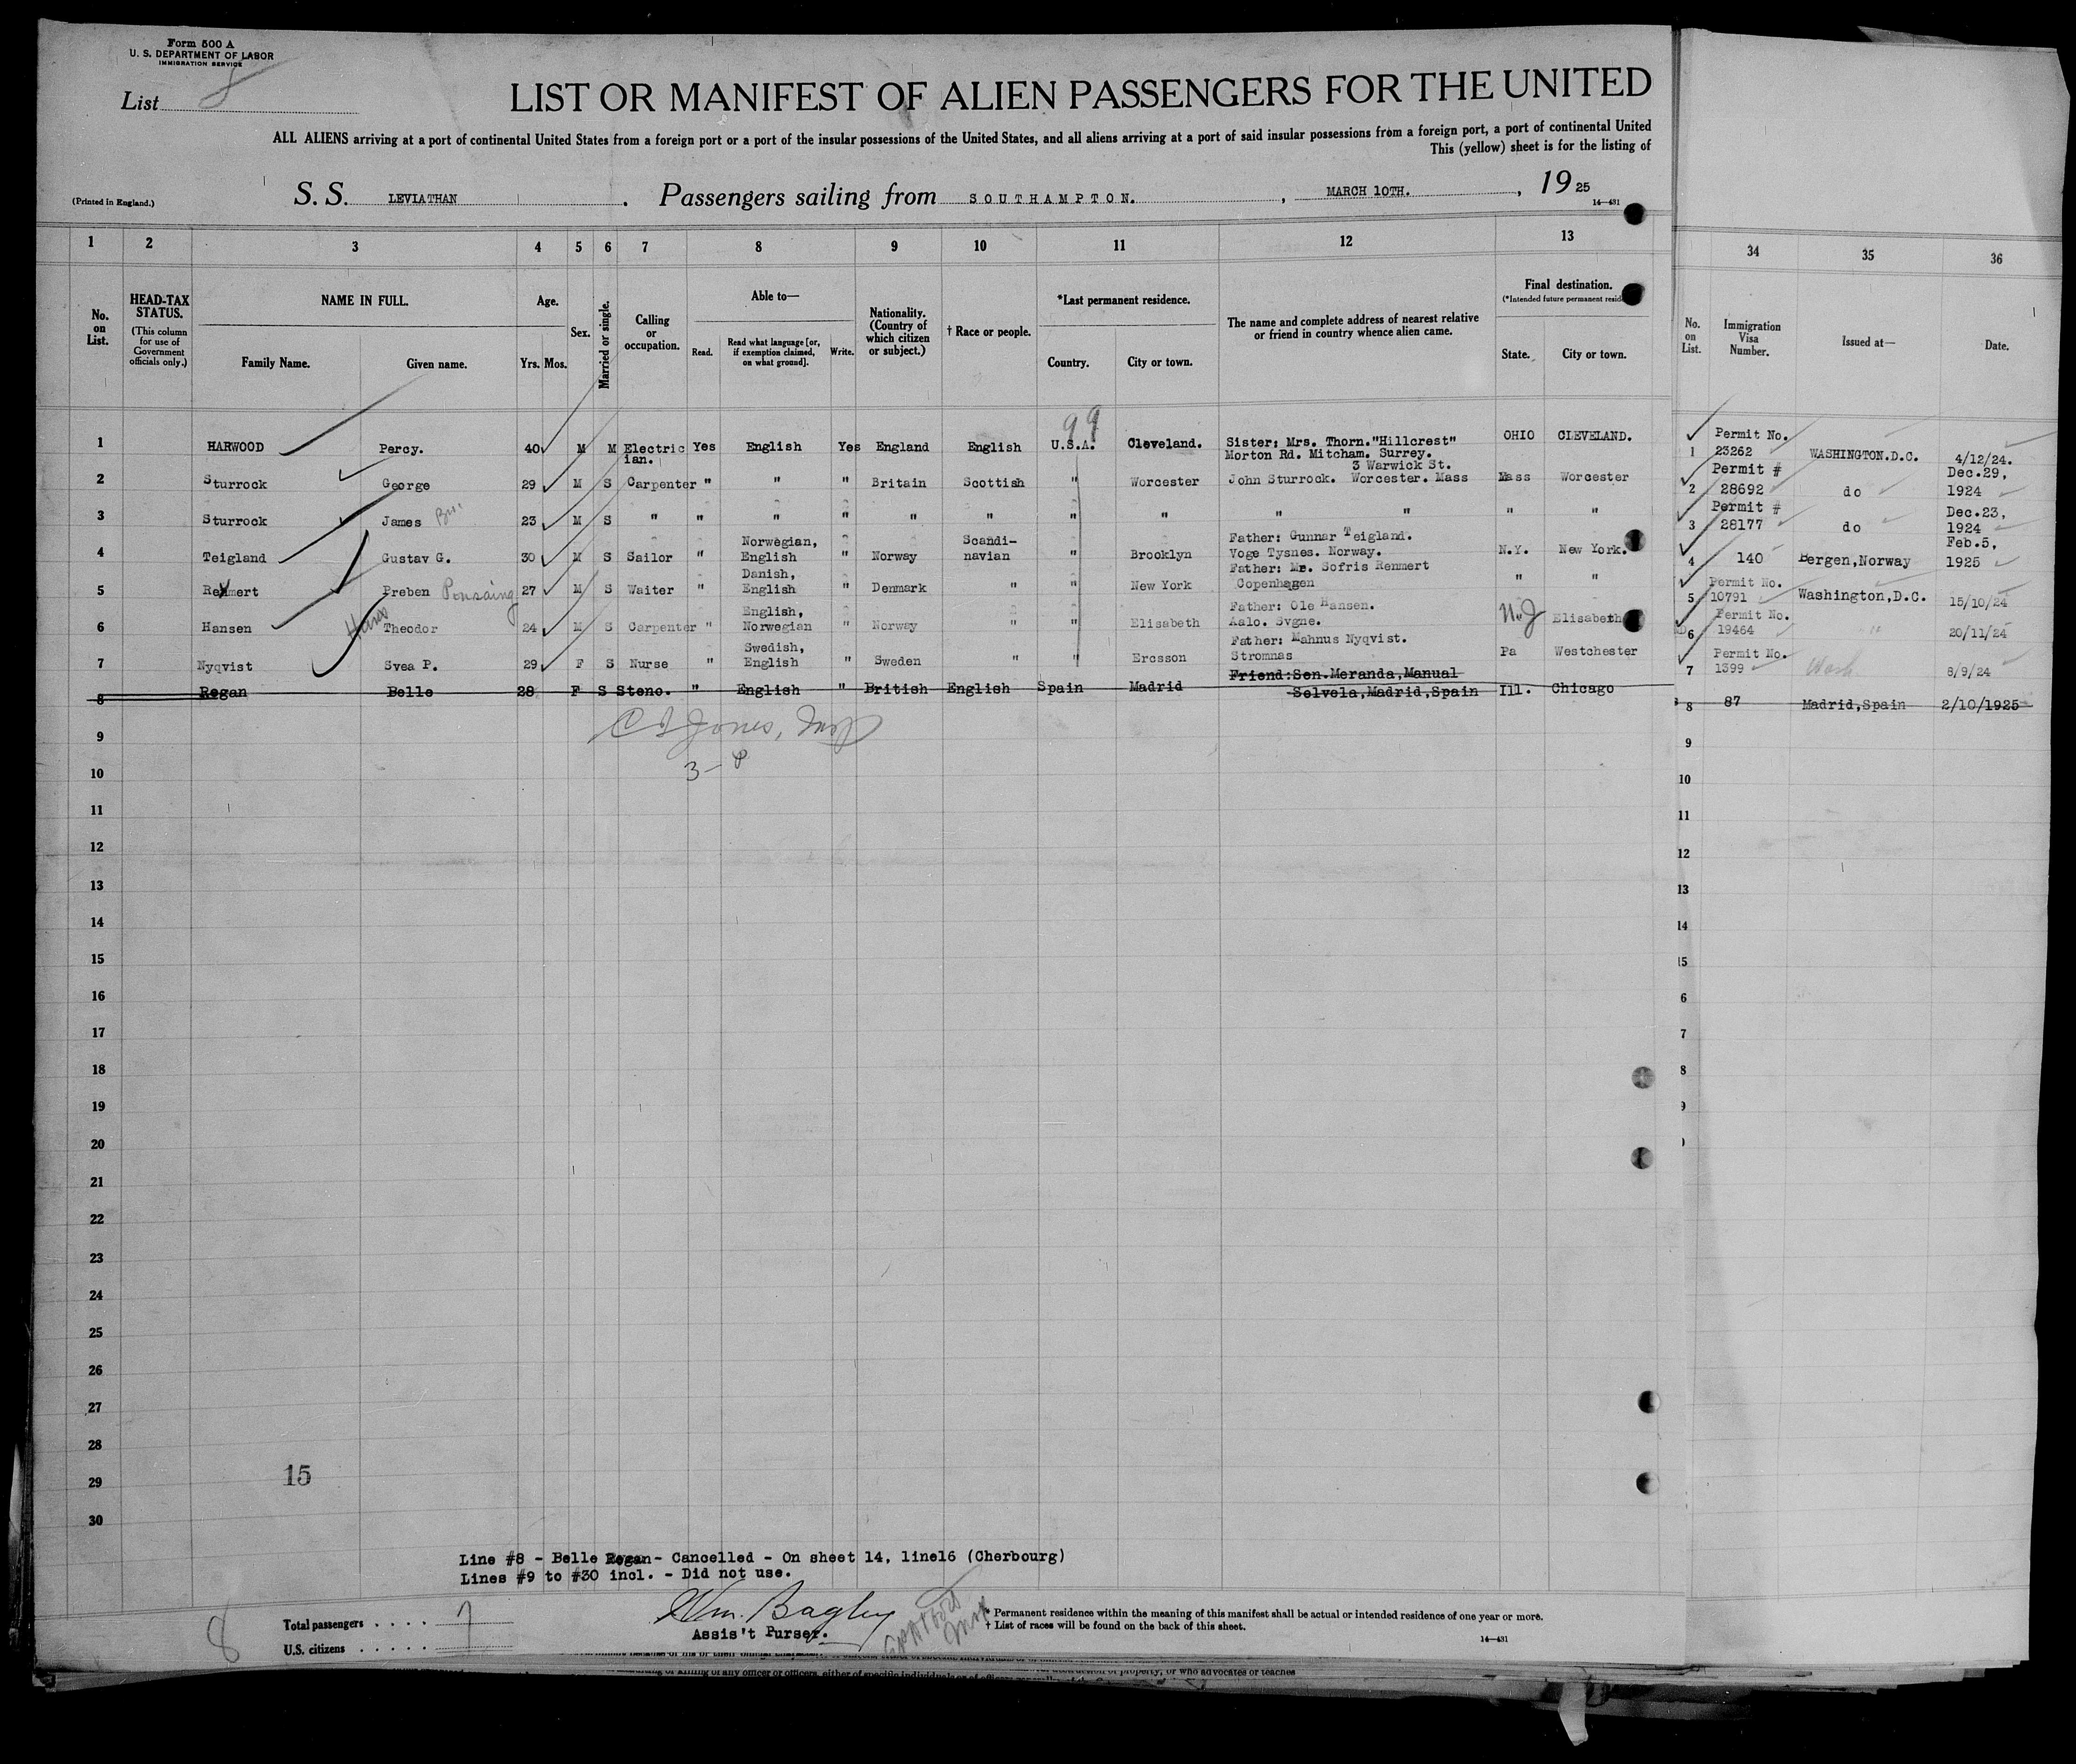 Form 500 A
U. S. DEPARTMENT OF LABOR
IMMIGRATION SERVICE
List 8
LIST OR MANIFEST OF ALIEN PASSENGERS FOR THE UNITED
ALL ALIENS arriving at a port of continental United States from a foreign port or a port of the insular possessions of the United States, and all aliens arriving at a port of said insular possessions from a foreign port, a port of continental United
This (yellow) sheet is for the listing of
(Printed in England.)
S. S. LEVIATHAN . Passengers sailing from SOUTHAMPTON. , MARCH 10TH. , 19 25
14—431
1 2 3 4 5 6 7 8 9 10 11 12 13 34 35 36
No. on List.
HEAD-TAX STATUS.
(This column for use of Government officials only.)
NAME IN FULL.
Family Name. Given name.
Age.
Yrs. Mos.
Sex.
Married or single.
Calling or occupation.
Able to—
Read. Read what language [or, if exemption claimed, on what ground]. Write.
Nationality. (Country of which citizen or subject.)
† Race or people.
*Last permanent residence.
Country. City or town.
The name and complete address of nearest relative or friend in country whence alien came.
Final destination.
(*Intended future permanent resid
State. City or town.
No. on List.
Immigration Visa Number.
Issued at—
Date.
99
1 HARWOOD Percy. 40 M M Electric ian. Yes English Yes England English U.S.A. Cleveland. Sister: Mrs. Thorn."Hillcrest" Morton Rd. Mitcham. Surrey. OHIO CLEVELAND. 1 Permit No. 23262 WASHINGTON.D.C. 4/12/24.
2 Sturrock George 29 M S Carpenter " " " Britain Scottish " Worcester John Sturrock. 3 Warwick St. Worcester. Mass Mass Worcester 2 Permit # 28692 do Dec.29, 1924
3 Sturrock James 23 M S " " " " " " " " " " " " 3 Permit # 28177 do Dec.23, 1924
4 Teigland Gustav G. 30 M S Sailor " Norwegian, English " Norway Scandi- navian " Brooklyn Father: Gunnar Teigland. Voge Tysnes. Norway. N.Y. New York. 4 140 Bergen,Norway Feb.5, 1925
5 Remmert Preben Ponsaing 27 M S Waiter " Danish, English " Denmark " " New York Father: Mr. Sofris Renmert Copenhagen " " 5 Permit No. 10791 Washington,D.C. 15/10/24
6 Hansen Hans Theodor 24 M S Carpenter " English, Norwegian " Norway " " Elisabeth Father: Ole Hansen. Aalo. Svgne. N.J Elisabeth 6 Permit No. 19464 " 20/11/24
7 Nyqvist Svea P. 29 F S Nurse " Swedish, English " Sweden " " Ercsson Father: Mahnus Nyqvist. Stromnas Pa Westchester 7 Permit No. 1399 Wash 8/9/24
8 Regan Belle 28 F S Steno. " English " British English Spain Madrid Friend:Sen.Meranda,Manual Selvela,Madrid,Spain Ill. Chicago 8 87 Madrid,Spain 2/10/1925
Jones,
3-8
9 9
10 10
11 11
12 12
13 13
14 14
15 15
16 6
17 7
18 8
19 9
20
21
22
23
24
25
26
27
28
29
30
15
Line #8 - Belle Regan- Cancelled - On sheet 14, line16 (Cherbourg)
Lines #9 to #30 incl. - Did not use.
8
Total passengers . . . . 7
U.S. citizens . . . . .
Wm. Bagley
Assis't Purser.
* Permanent residence within the meaning of this manifest shall be actual or intended residence of one year or more.
† List of races will be found on the back of this sheet.
14—431
of killing of any officer or officers, either of specific individuals or of officers
of property, or who advocates or teaches